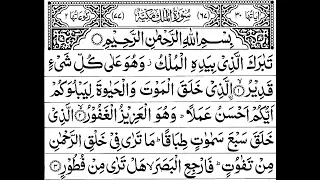 اٰيَاتُهَا ٣٠ (٦٧) سُوْرَةُ الْمُلْكِ مَكِّيَّةٌ (٧٧) رُكُوْعَاتُهَا ٢
بِسْمِ اللّٰهِ الرَّحْمٰنِ الرَّحِيْمِ
تَبٰرَكَ الَّذِىْ بِيَدِهِ الْمُلْكُ ۫ وَهُوَ عَلٰى كُلِّ شَىْءٍ
قَدِيْرُ ۙ﴿١﴾ اۨلَّذِىْ خَلَقَ الْمَوْتَ وَالْحَيٰوةَ لِيَبْلُوَكُمْ
اَيُّكُمْ اَحْسَنُ عَمَلًا ؕ وَهُوَ الْعَزِيْزُ الْغَفُوْرُ ۙ﴿٢﴾ الَّذِىْ
خَلَقَ سَبْعَ سَمٰوٰتٍ طِبَاقًا ؕ مَا تَرٰى فِىْ خَلْقِ الرَّحْمٰنِ
مِنْ تَفٰوُتٍ ؕ فَارْجِعِ الْبَصَرَ ۙ هَلْ تَرٰى مِنْ فُطُوْرٍ ﴿٣﴾